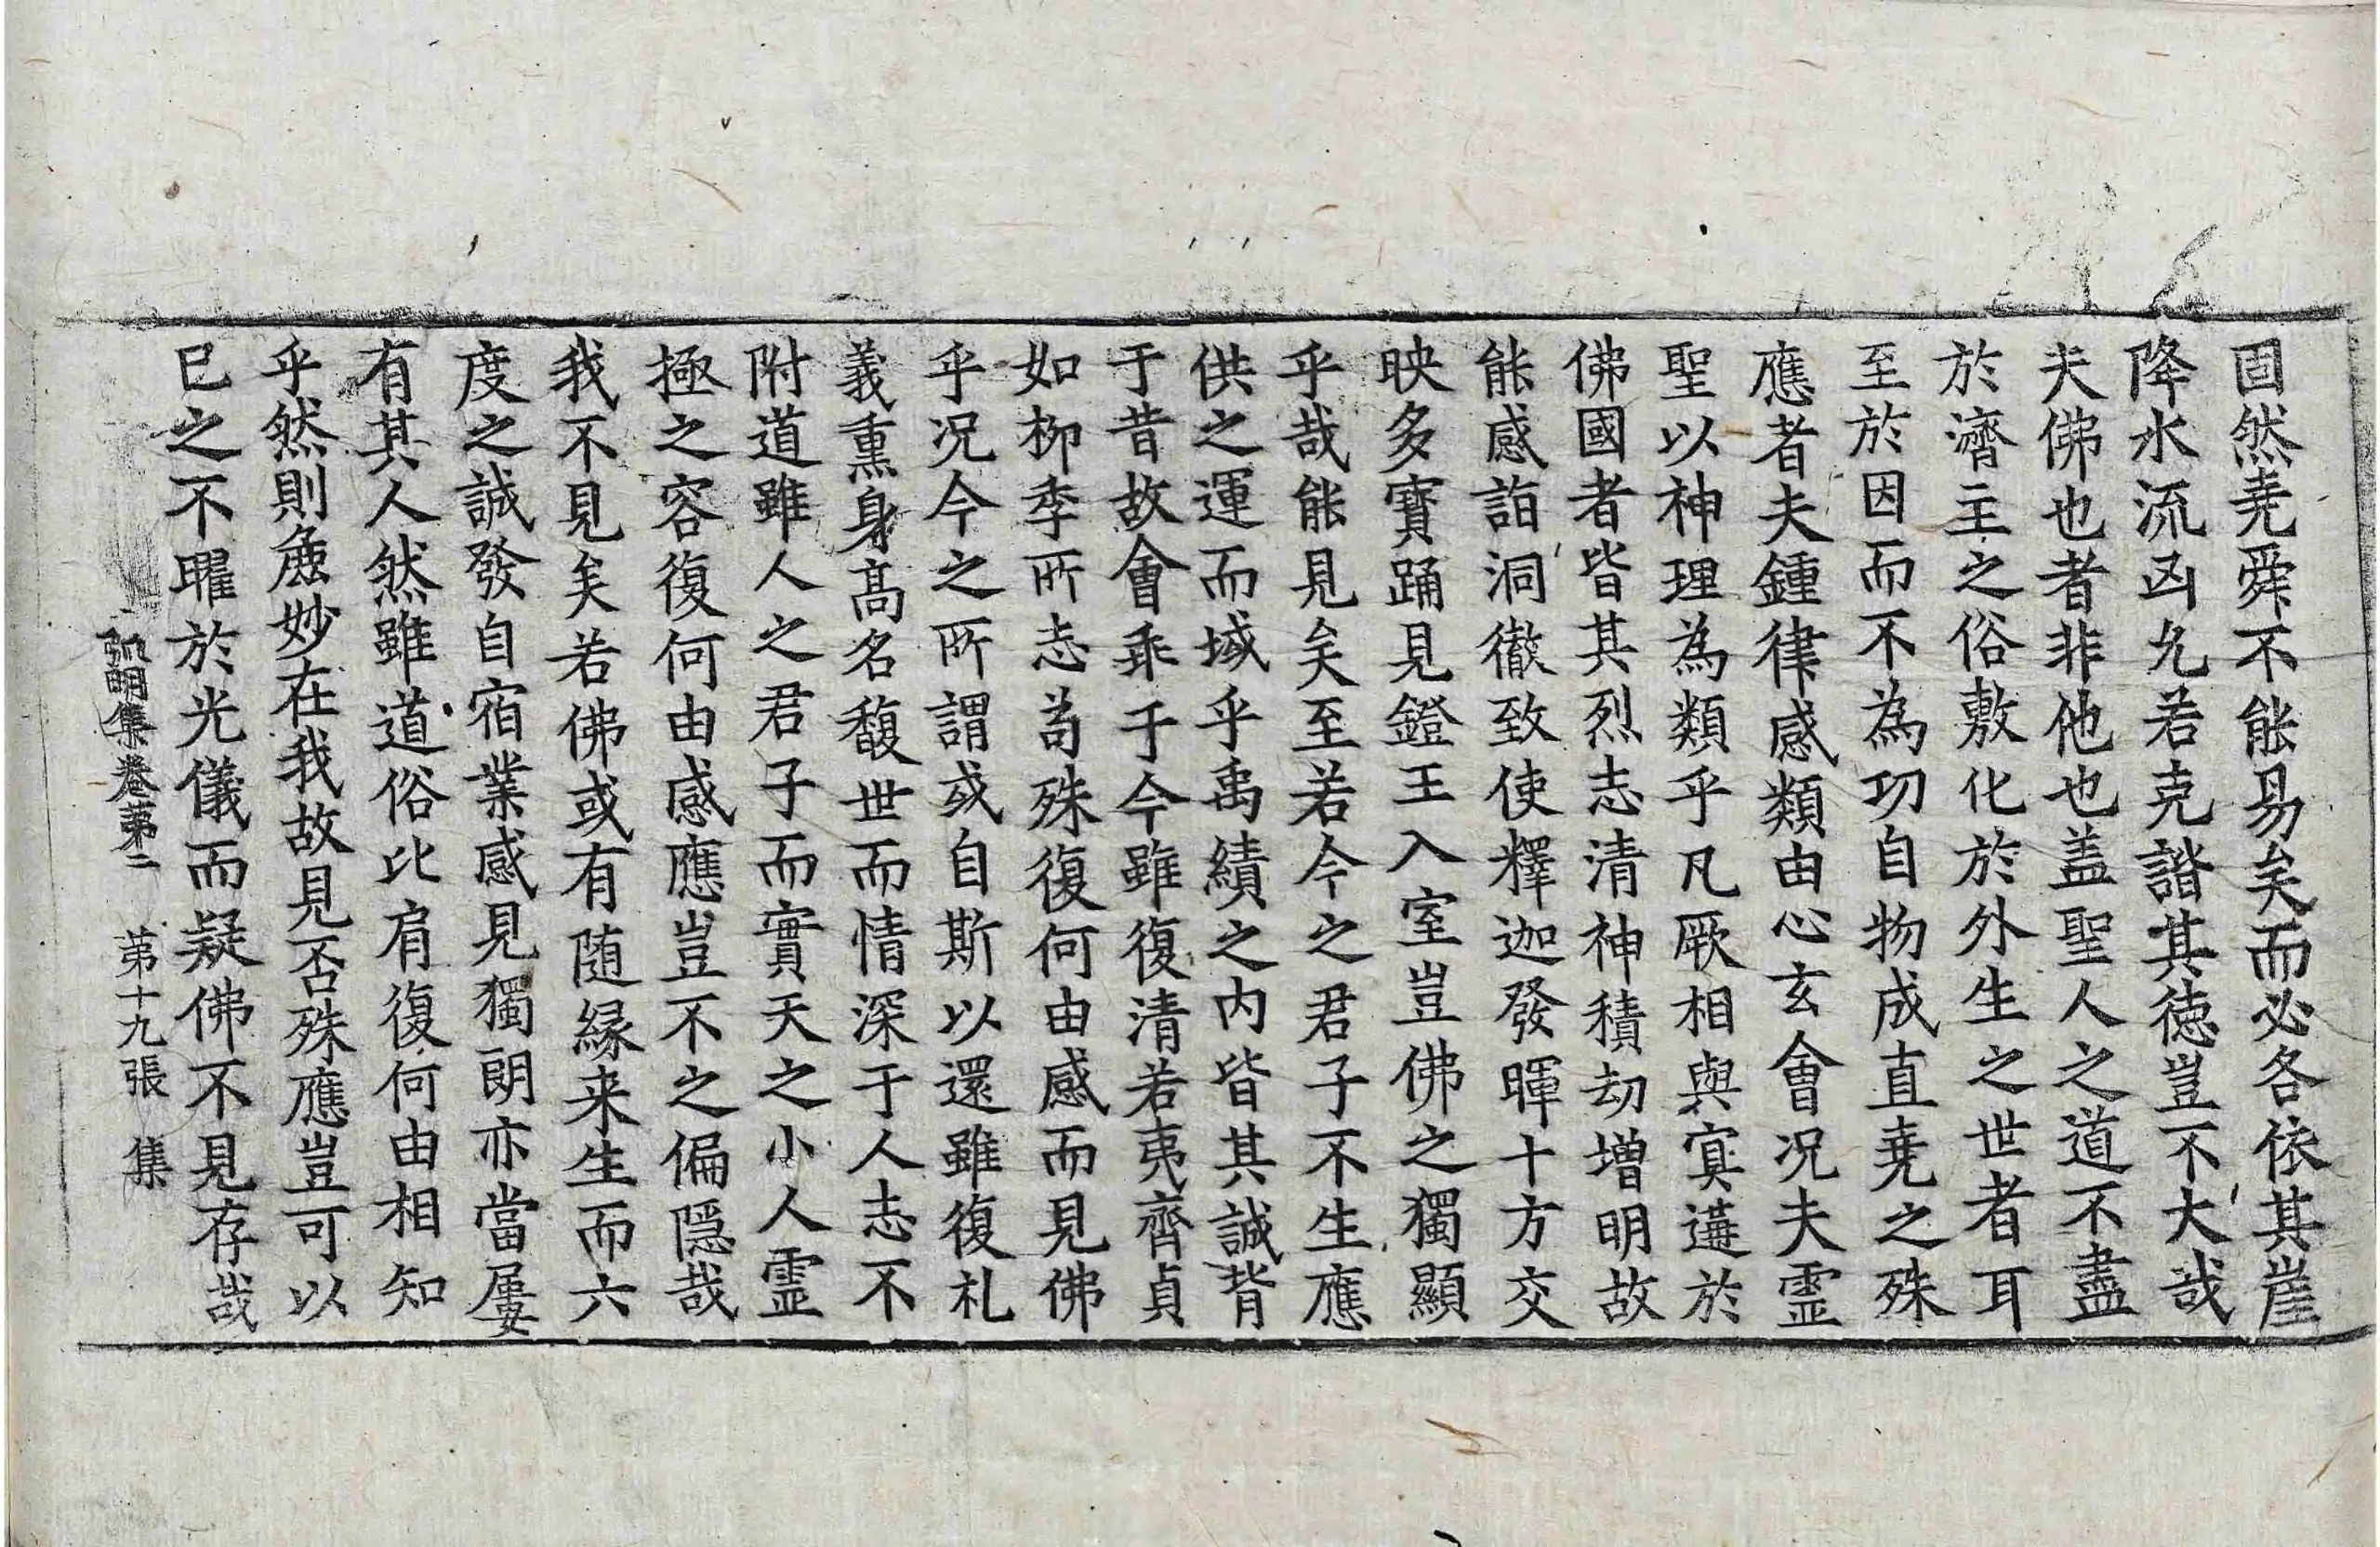 固然堯舜不能易矣而必各依其崖
降水流凶允若克諧其德豈不大哉
夫佛也者非他也盖聖人之道不盡
於濟主之俗敷化於外生之世者耳
至於因而不為功自物成直堯之殊
應者夫鍾律感類由心玄會况夫霊
聖以神理為類乎凡厥相與㝠遘於
佛國者皆其烈志清神積劫增明故
能感詣洞徹致使釋迦發暉十方交
映多寶踊見鐙王入室豈佛之獨顯
乎哉能見矣至若今之君子不生應
供之運而域乎禹績之内皆其誠背
于昔故會乖于今雖復清若夷齊貞
如柳季所志苟殊復何由感而見佛
乎况今之所謂或自斯以還雖復礼
義熏身高名馥世而情深于人志不
附道雖人之君子而實天之小人霊
極之容復何由感應豈不之偏隠哉
我不見矣若佛或有随緣来生而六
度之誠發自宿業感見獨朗亦當屢
有其人然雖道俗比肩復何由相知
乎然則麁妙在我故見否殊應豈可以
已之不曜於光儀而疑佛不見存哉
弘明集卷第二 第十九張 集